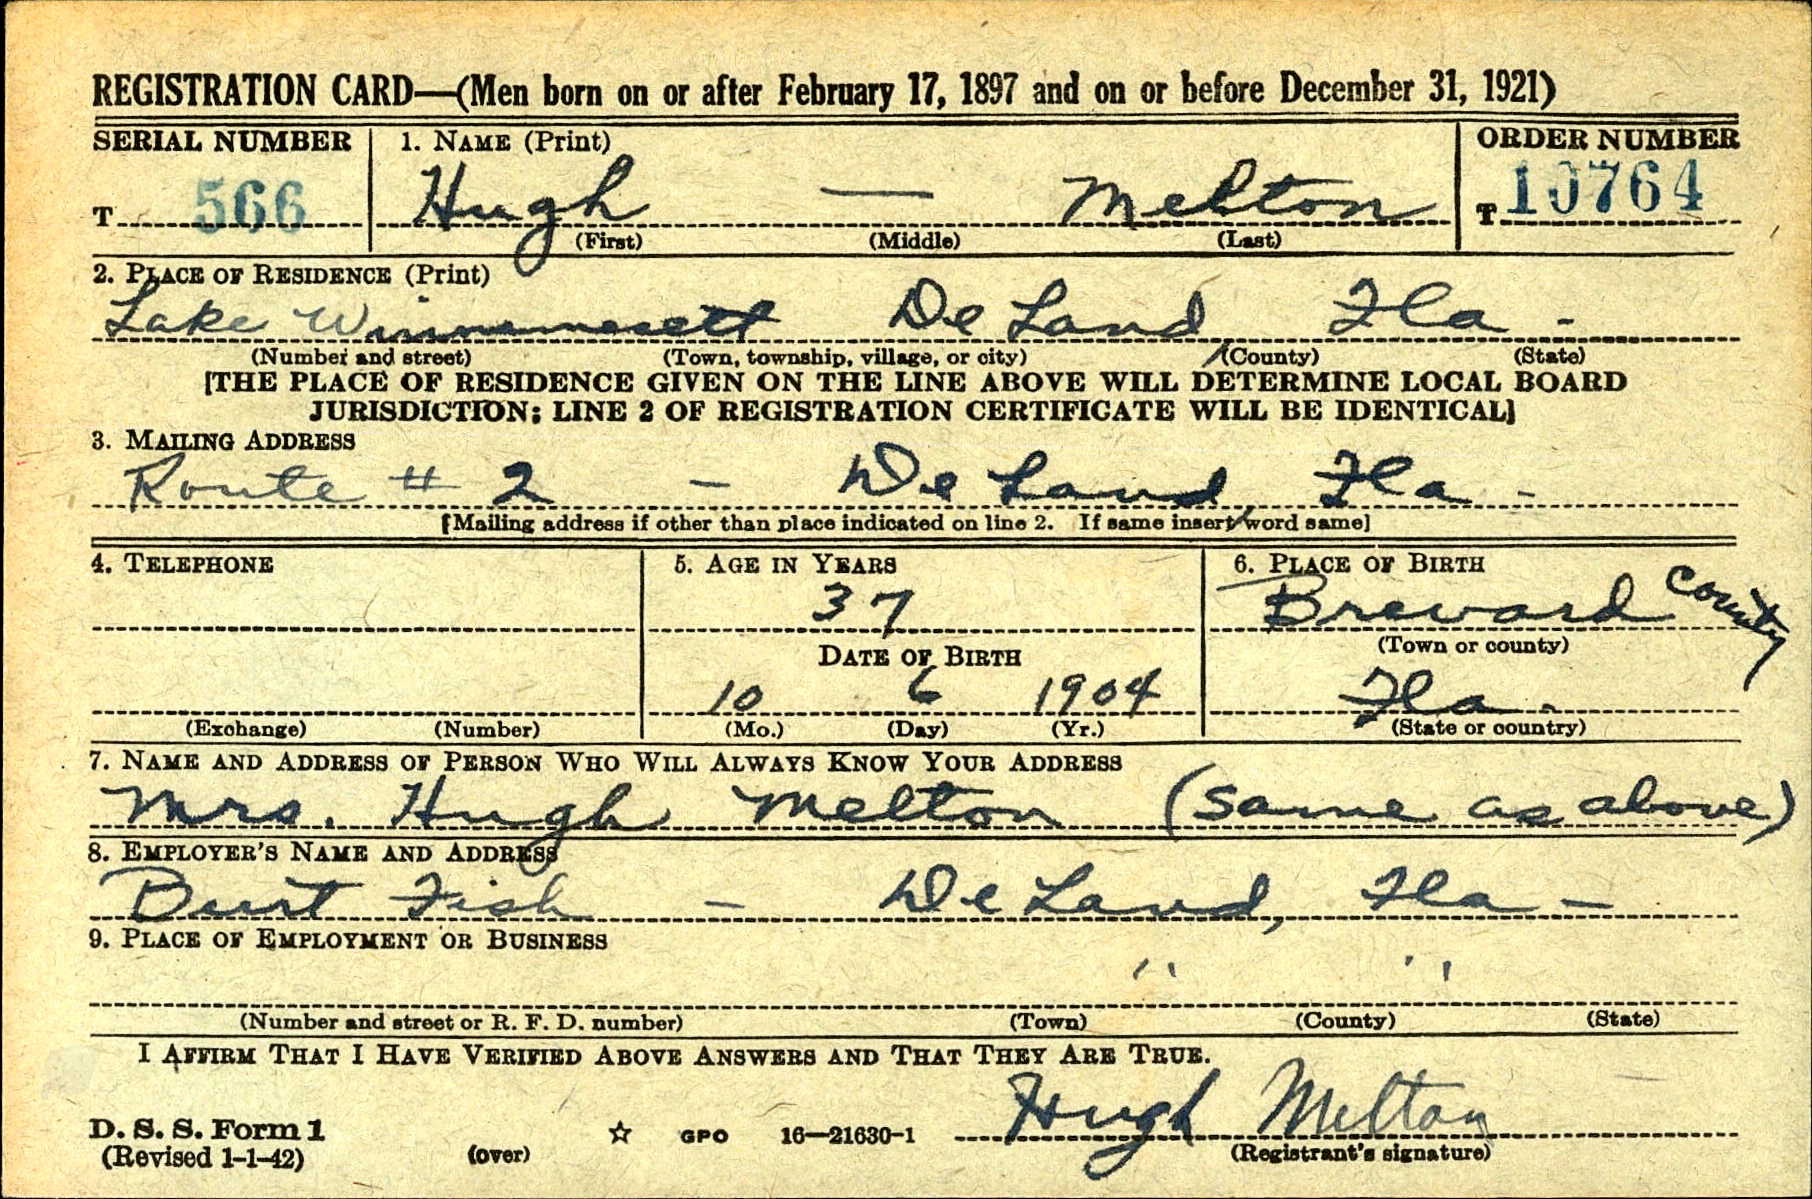 REGISTRATION CARD—(Men born on or after February 17, 1897 and on or before December 31, 1921)
SERIAL NUMBER 1. NAME (Print) ORDER NUMBER
T 566 Hugh — Melton T 10764
(First) (Middle) (Last)
2. PLACE OF RESIDENCE (Print)
Lake Winnemesett De Land Fla -
(Number and street) (Town, township, village, or city) (County) (State)
[THE PLACE OF RESIDENCE GIVEN ON THE LINE ABOVE WILL DETERMINE LOCAL BOARD
JURISDICTION; LINE 2 OF REGISTRATION CERTIFICATE WILL BE IDENTICAL]
3. MAILING ADDRESS
Route # 2 - De Land, Fla -
[Mailing address if other than place indicated on line 2. If same insert word same]
4. TELEPHONE 5. AGE IN YEARS 6. PLACE OF BIRTH
37 Brevard County
(Town or county)
DATE OF BIRTH
10 6 1904 Fla.
(Exchange) (Number) (Mo.) (Day) (Yr.) (State or country)
7. NAME AND ADDRESS OF PERSON WHO WILL ALWAYS KNOW YOUR ADDRESS
Mrs. Hugh Melton (same as above)
8. EMPLOYER'S NAME AND ADDRESS
Burt Fish - De Land, Fla -
9. PLACE OF EMPLOYMENT OR BUSINESS
" "
(Number and street or R. F. D. number) (Town) (County) (State)
I AFFIRM THAT I HAVE VERIFIED ABOVE ANSWERS AND THAT THEY ARE TRUE.
Hugh Melton
D. S. S. Form 1
(Revised 1-1-42) (over) ☆ GPO 16—21630-1 (Registrant's signature)